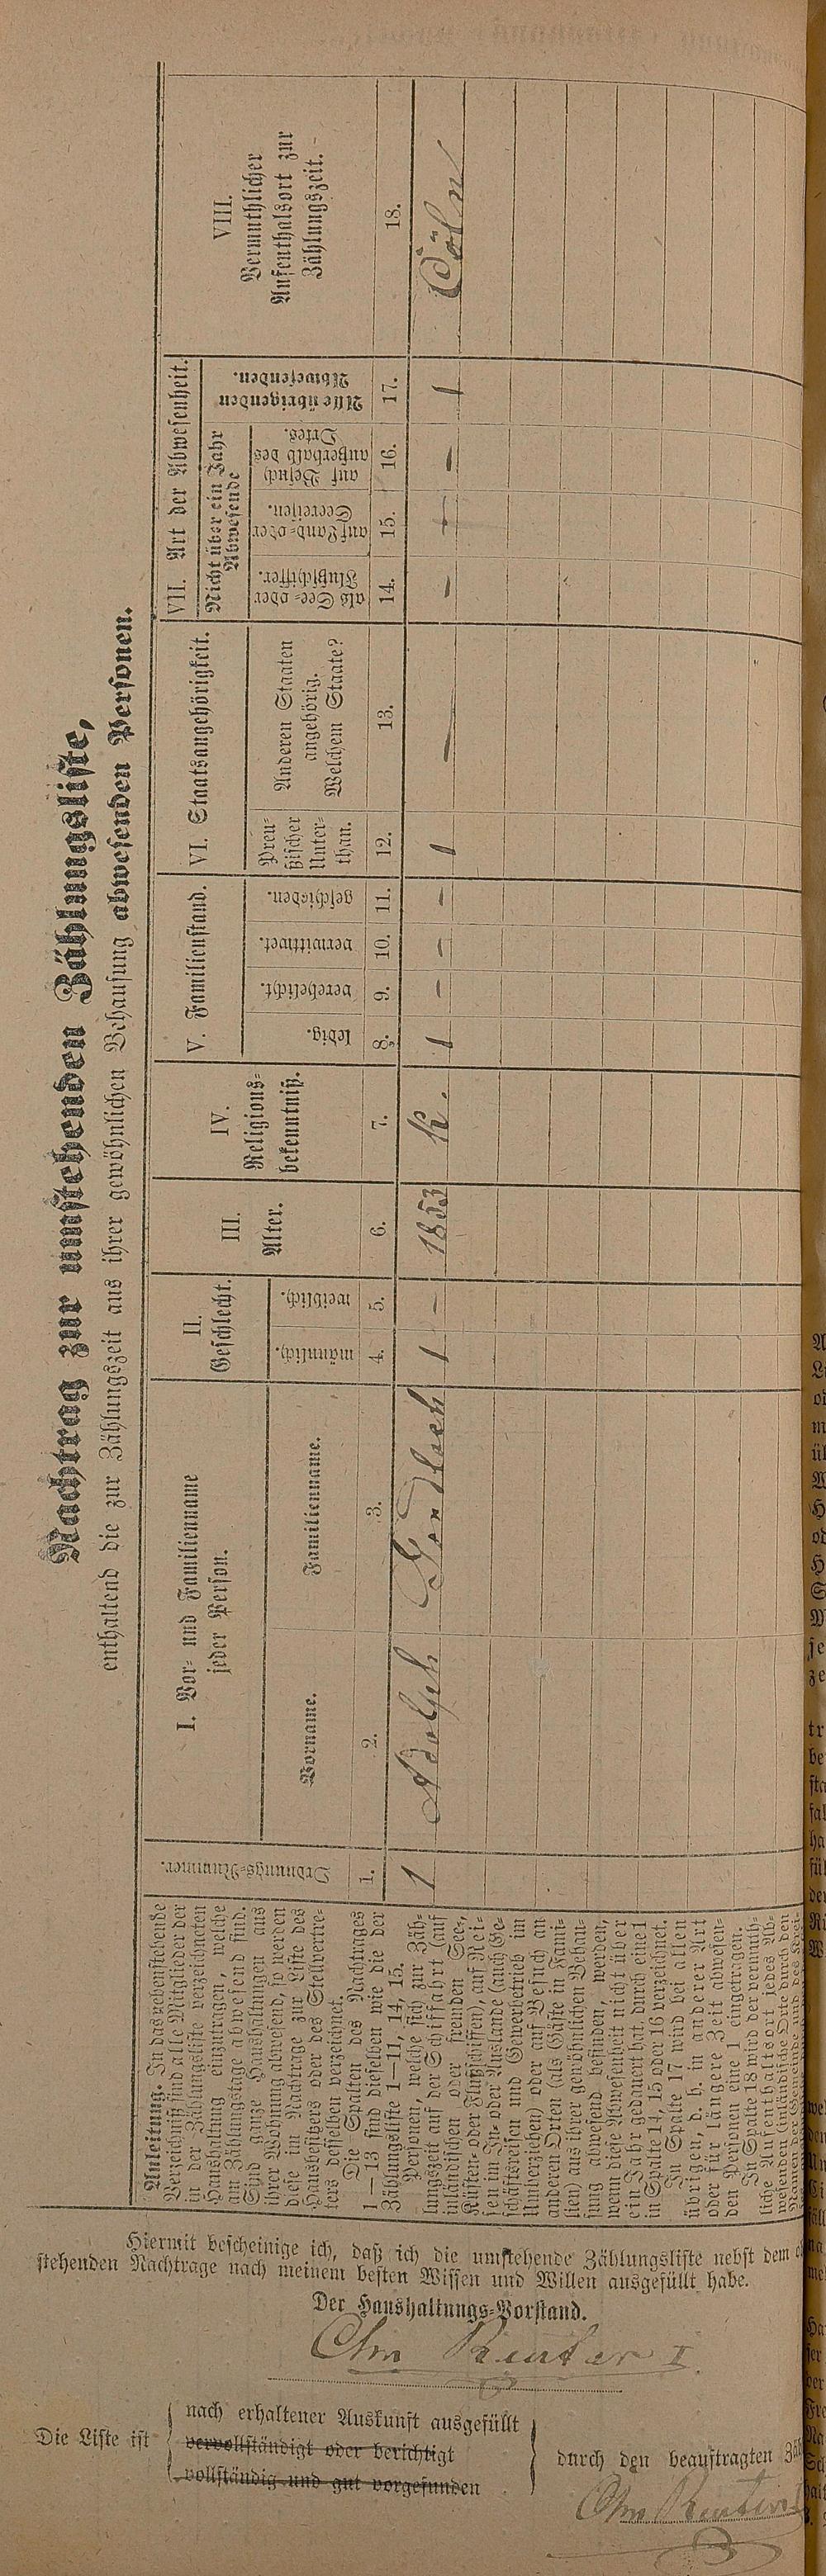 Nachtrag zur umstehenden Zählungsliste,
enthaltend die zur Zählungszeit aus ihrer gewöhnlichen Behausung abwesenden Personen.
Anleitung. In das nebenstehende
Verzeichniß sind alle Mitglieder der
in der Zählungsliste verzeichneten
Haushaltung einzutragen, welche
am Zählungstage abwesend sind.
Sind ganze Haushaltungen aus
ihrer Wohnung abwesend, so werden
diese im Nachtrage zur Liste des
Hausbesitzers oder des Stellvertre-
ters desselben verzeichnet.
Die Spalten des Nachtrages
1—13 sind dieselben wie die der
Zählungsliste 1—11, 14, 15.
Personen, welche sich zur Zäh-
lungszeit auf der Schifffahrt (auf
inländischen oder fremden See-,
Küsten- oder Flußschiffen), auf Rei-
sen im In- oder Auslande (auch Ge-
schäftsreisen und Gewerbetrieb im
Umherziehen) oder auf Besuch an
anderen Orten (als Gäste in Fami-
lien) aus ihrer gewöhnlichen Behau-
sung abwesend befinden, werden,
wenn diese Abwesenheit nicht über
ein Jahr gedauert hat, durch eine 1
in Spalte 14, 15 oder 16 verzeichnet.
In Spalte 17 wird bei allen
übrigen, d. h. in anderer Art
oder für längere Zeit abwesen-
den Personen eine 1 eingetragen.
In Spalte 18 wird der vermuth-
liche Aufenthaltsort jedes Ab-
wesenden (inländische Orte durch den
Namen der Gemeinde und des Krei-
Ordnungs-Nummer.
I. Vor- und Familienname
jeder Person.
Vorname.
Familienname.
II.
Geschlecht.
männlich.
weiblich.
III.
Alter.
IV.
Religions-
bekenntniß.
V. Familienstand.
ledig.
verehelicht.
verwittwet.
geschieden.
VI. Staatsangehörigkeit.
Preu-
ßischer
Unter-
than.
Anderen Staaten
angehörig.
Welchem Staate?
VII. Art der Abwesenheit.
Nicht über ein Jahr
Abwesende
als See- oder
Flußschiffer.
auf Land- oder
Seereisen.
auf Besuch
außerhalb des
Ortes.
Alle übrigen
Abwesenden.
VIII.
Vermuthlicher
Aufenthaltsort zur
Zählungszeit.
1. 2. 3. 4. 5. 6. 7. 8. 9. 10. 11. 12. 13. 14. 15. 16. 17. 18.
1 Adolph Gondloch 1 – 1853 K. 1 – – – 1 – – – – 1 Cöln
Hiermit bescheinige ich, daß ich die umstehende Zählungsliste nebst dem
stehenden Nachtrage nach meinem besten Wissen und Willen ausgefüllt habe.
Der Haushaltungs-Vorstand.
Chm Reuter I
Die Liste ist
nach erhaltener Auskunft ausgefüllt
vervollständigt oder berichtigt
vollständig und gut vorgefunden
durch den beauftragten
Chm Reuter